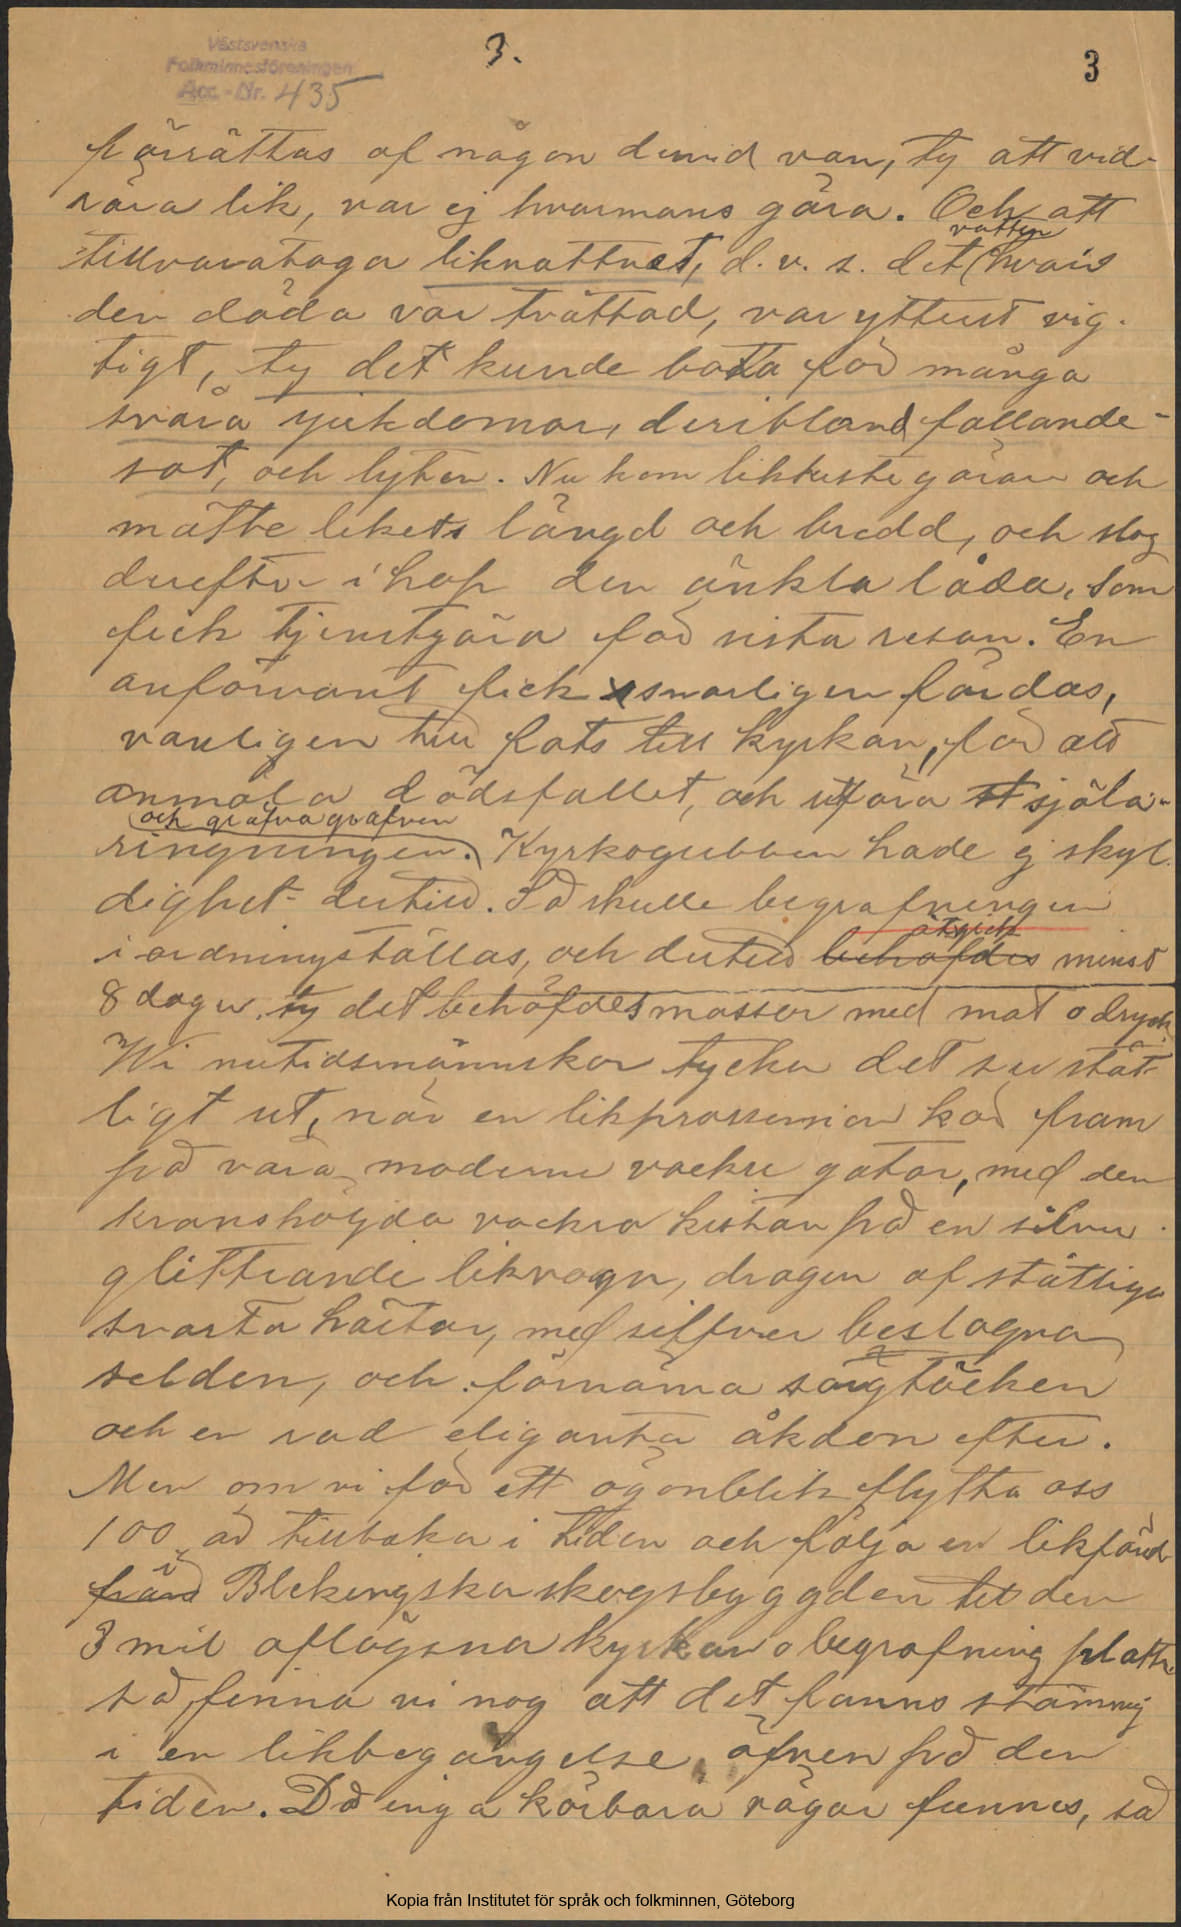 Västsvenska
Folkminnesföreningen
Acc.-Nr. 435
3.
3
förrättas af någon dervid van, ty att vid-
röra lik, var ej hvarmans göra. Och att
vatten
tillvarataga likvattnet, d. v. s. det hvari
den döda var tvättad, var ytterst vig-
tigt, ty det kunde bota för många
svåra sjukdomar, deribland fallande-
sot, och lyten. Nu kom likkistegöraren och
mätte likets längd och bredd, och slog
derefter ihop den enkla låda, som
fick tjenstgöra för sista resan. En
anförvant fick snarligen färdas,
vanligen till fots till kyrkan, för att
anmäla dödsfallet, och utföra själa-
och gräfva grafven
ringningen. Kyrkogubben hade ej skyl-
dighet dertill. Så skulle begrafningen
åtgick
i ordningställas, och dertill behöfdes minst
8 dagar, ty det behöfdes massor med mat o dryck.
Wi nutidsmänniskor tycka det ser ståt-
ligt ut, när en likprossession kör fram
på våra moderna vackra gator, med den
kranshöljda vackra kistan på en silfver
glittrande likvagn, dragen af ståtliga
svarta hästar, med silfver beslagna
seldon, och förnäma sorgtäcken
och en rad eliganta åkdon efter.
Men om vi för ett ögonblik flytta oss
100 år tillbaka i tiden och följa en likfärd
i
från Blekingska skogsbygden till den
3 mil aflägsna kyrkan o begrafning platts
så finna vi nog att det fanns stämning
i en likbegängelse äfven på den
tiden. Då inga körbara vägar funnos, så
Kopia från Institutet för språk och folkminnen, Göteborg